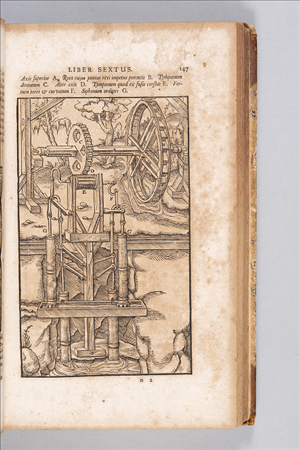 LIBER SEXTUS. 147
Axis superior A. Rota cujus pinnas rivi impetus percutit B. Tympanum
dentatum C. Alter axis D. Tympanum quod ex fusis constat E. Fer-
rum teres & curvatum F. Siphonum ordines G.